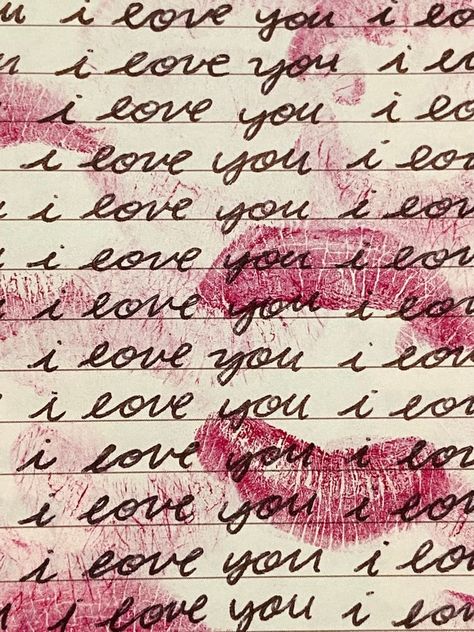 u i love you i lo
u i love you i lo
i love you i lo
i love you i lo
i love you i lov
i love you i lov
i love you i lov
i love you i lov
i love you i lov
i love you i lov
i love you i lov
i love you i lo
i love you i lo